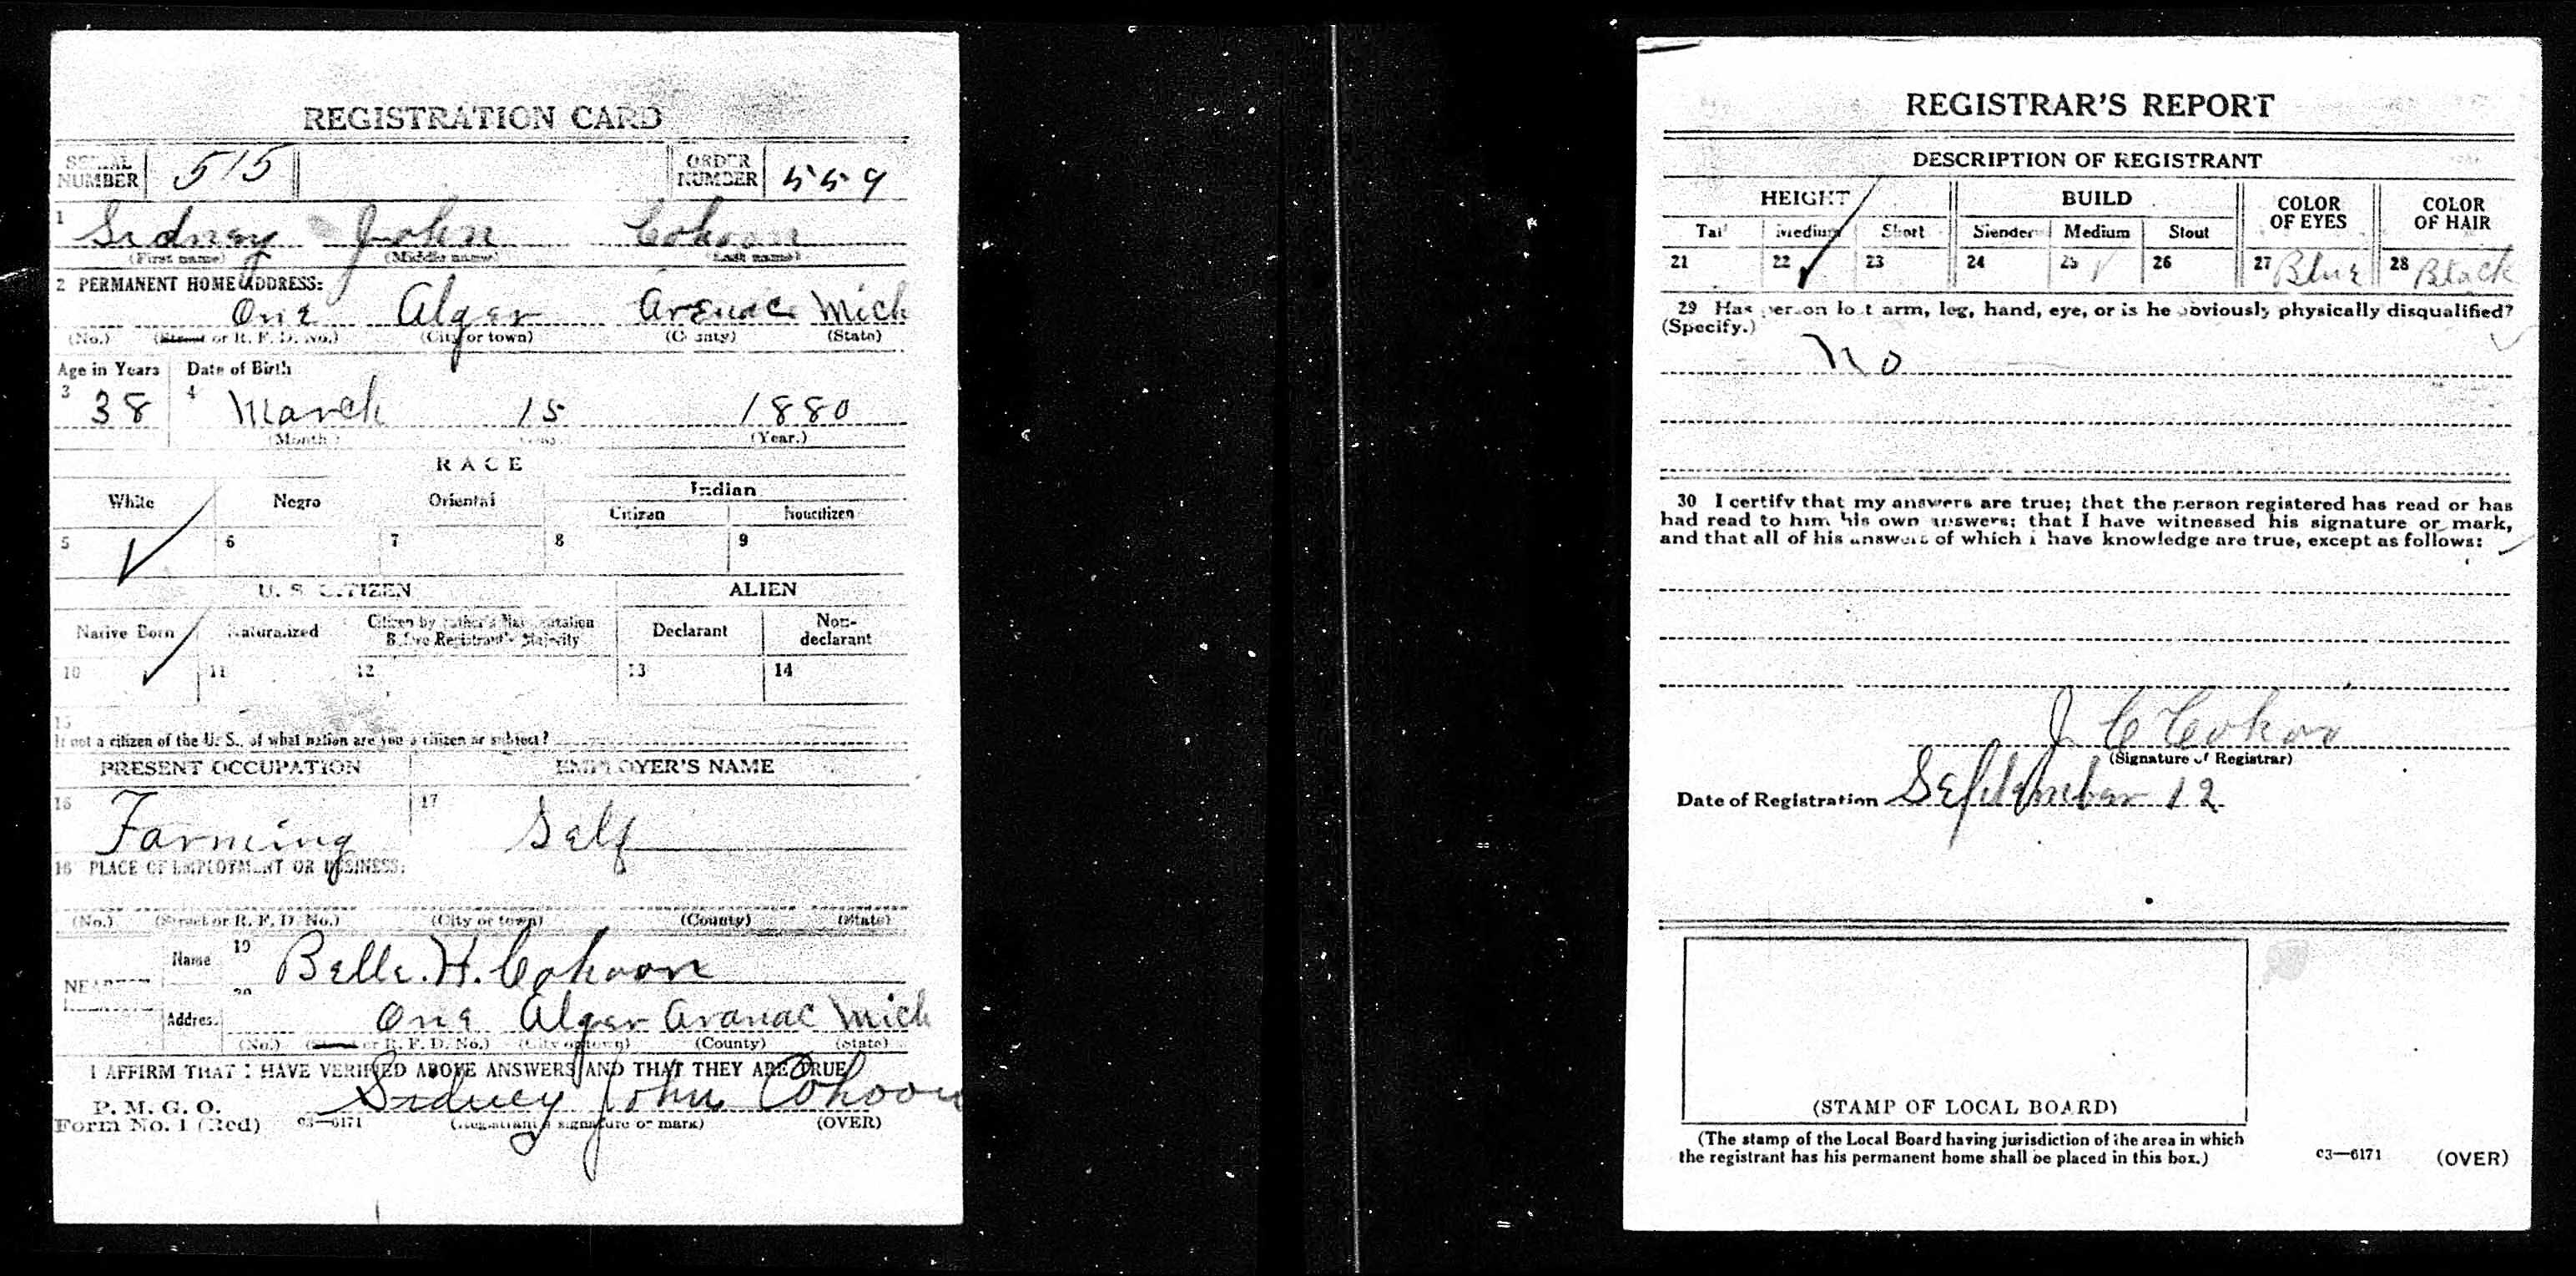 REGISTRATION CARD
SERIAL NUMBER 515 ORDER NUMBER 559
1 Sidney John Cohoon
(First name) (Middle name) (Last name)
2 PERMANENT HOME ADDRESS:
One Alger Arenac Mich
(No.) (Street or R. F. D. No.) (City or town) (County) (State)
Age in Years Date of Birth
3 38 4 March 15 1880
(Month) (Year.)
RACE
White Negro Oriental Indian
Citizen Noncitizen
5 ✓ 6 7 8 9
U. S. CITIZEN ALIEN
Native Born Naturalized Citizen by Father's Naturalization Before Registrant's Majority Declarant Non-declarant
10 ✓ 11 12 13 14
15
If not a citizen of the U. S., of what nation are you a citizen or subject?
PRESENT OCCUPATION EMPLOYER'S NAME
16 Farming 17 Self
18 PLACE OF EMPLOYMENT OR BUSINESS:
(No.) (Street or R. F. D. No.) (City or town) (County) (State)
Name 19 Belle. H. Cohoon
NEAREST
Address 20 One Alger Aranac Mich
(No.) (Street or R. F. D. No.) (City or town) (County) (State)
I AFFIRM THAT I HAVE VERIFIED ABOVE ANSWERS AND THAT THEY ARE TRUE
P. M. G. O.
Form No. 1 (Red) c3—6171 Sidney John Cohoon
(Registrant's signature or mark) (OVER)
REGISTRAR'S REPORT
DESCRIPTION OF REGISTRANT
HEIGHT BUILD COLOR OF EYES COLOR OF HAIR
Tall Medium Short Slender Medium Stout
21 22 ✓ 23 24 25 ✓ 26 27 Blue 28 Black
29 Has person lost arm, leg, hand, eye, or is he obviously physically disqualified?
(Specify.)
No
30 I certify that my answers are true; that the person registered has read or has
had read to him his own answers; that I have witnessed his signature or mark,
and that all of his answers of which I have knowledge are true, except as follows:
J C Cohoo
(Signature of Registrar)
Date of Registration September 12
(STAMP OF LOCAL BOARD)
(The stamp of the Local Board having jurisdiction of the area in which
the registrant has his permanent home shall be placed in this box.)
c3—6171 (OVER)